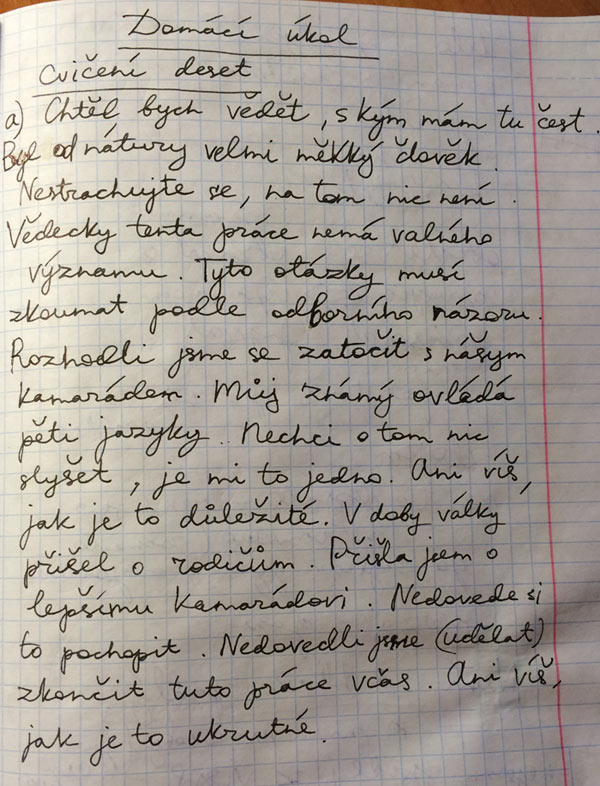 Domácí úkol
Cvičení deset
a) Chtěl bych vědět, s kým mám tu čest.
Byl od nátury velmi měkký čověk.
Nestrachujte se, na tom nic není.
Vědecky tenta práce nemá valného
významu. Tyto otázky musí
zkoumat podle odborního názoru.
Rozhodli jsme se zatočit s nášym
kamarádem. Můj známý ovládá
pěti jazyky. Nechci o tom nic
slyšet, je mi to jedno. Ani víš,
jak je to důležité. V doby války
přišel o rodičům. Přišla jsem o
lepšímu kamarádovi. Nedovede si
to pochopit. Nedovedli jsme (udělat)
zkončit tuto práce včas. Ani víš,
jak je to ukrutné.